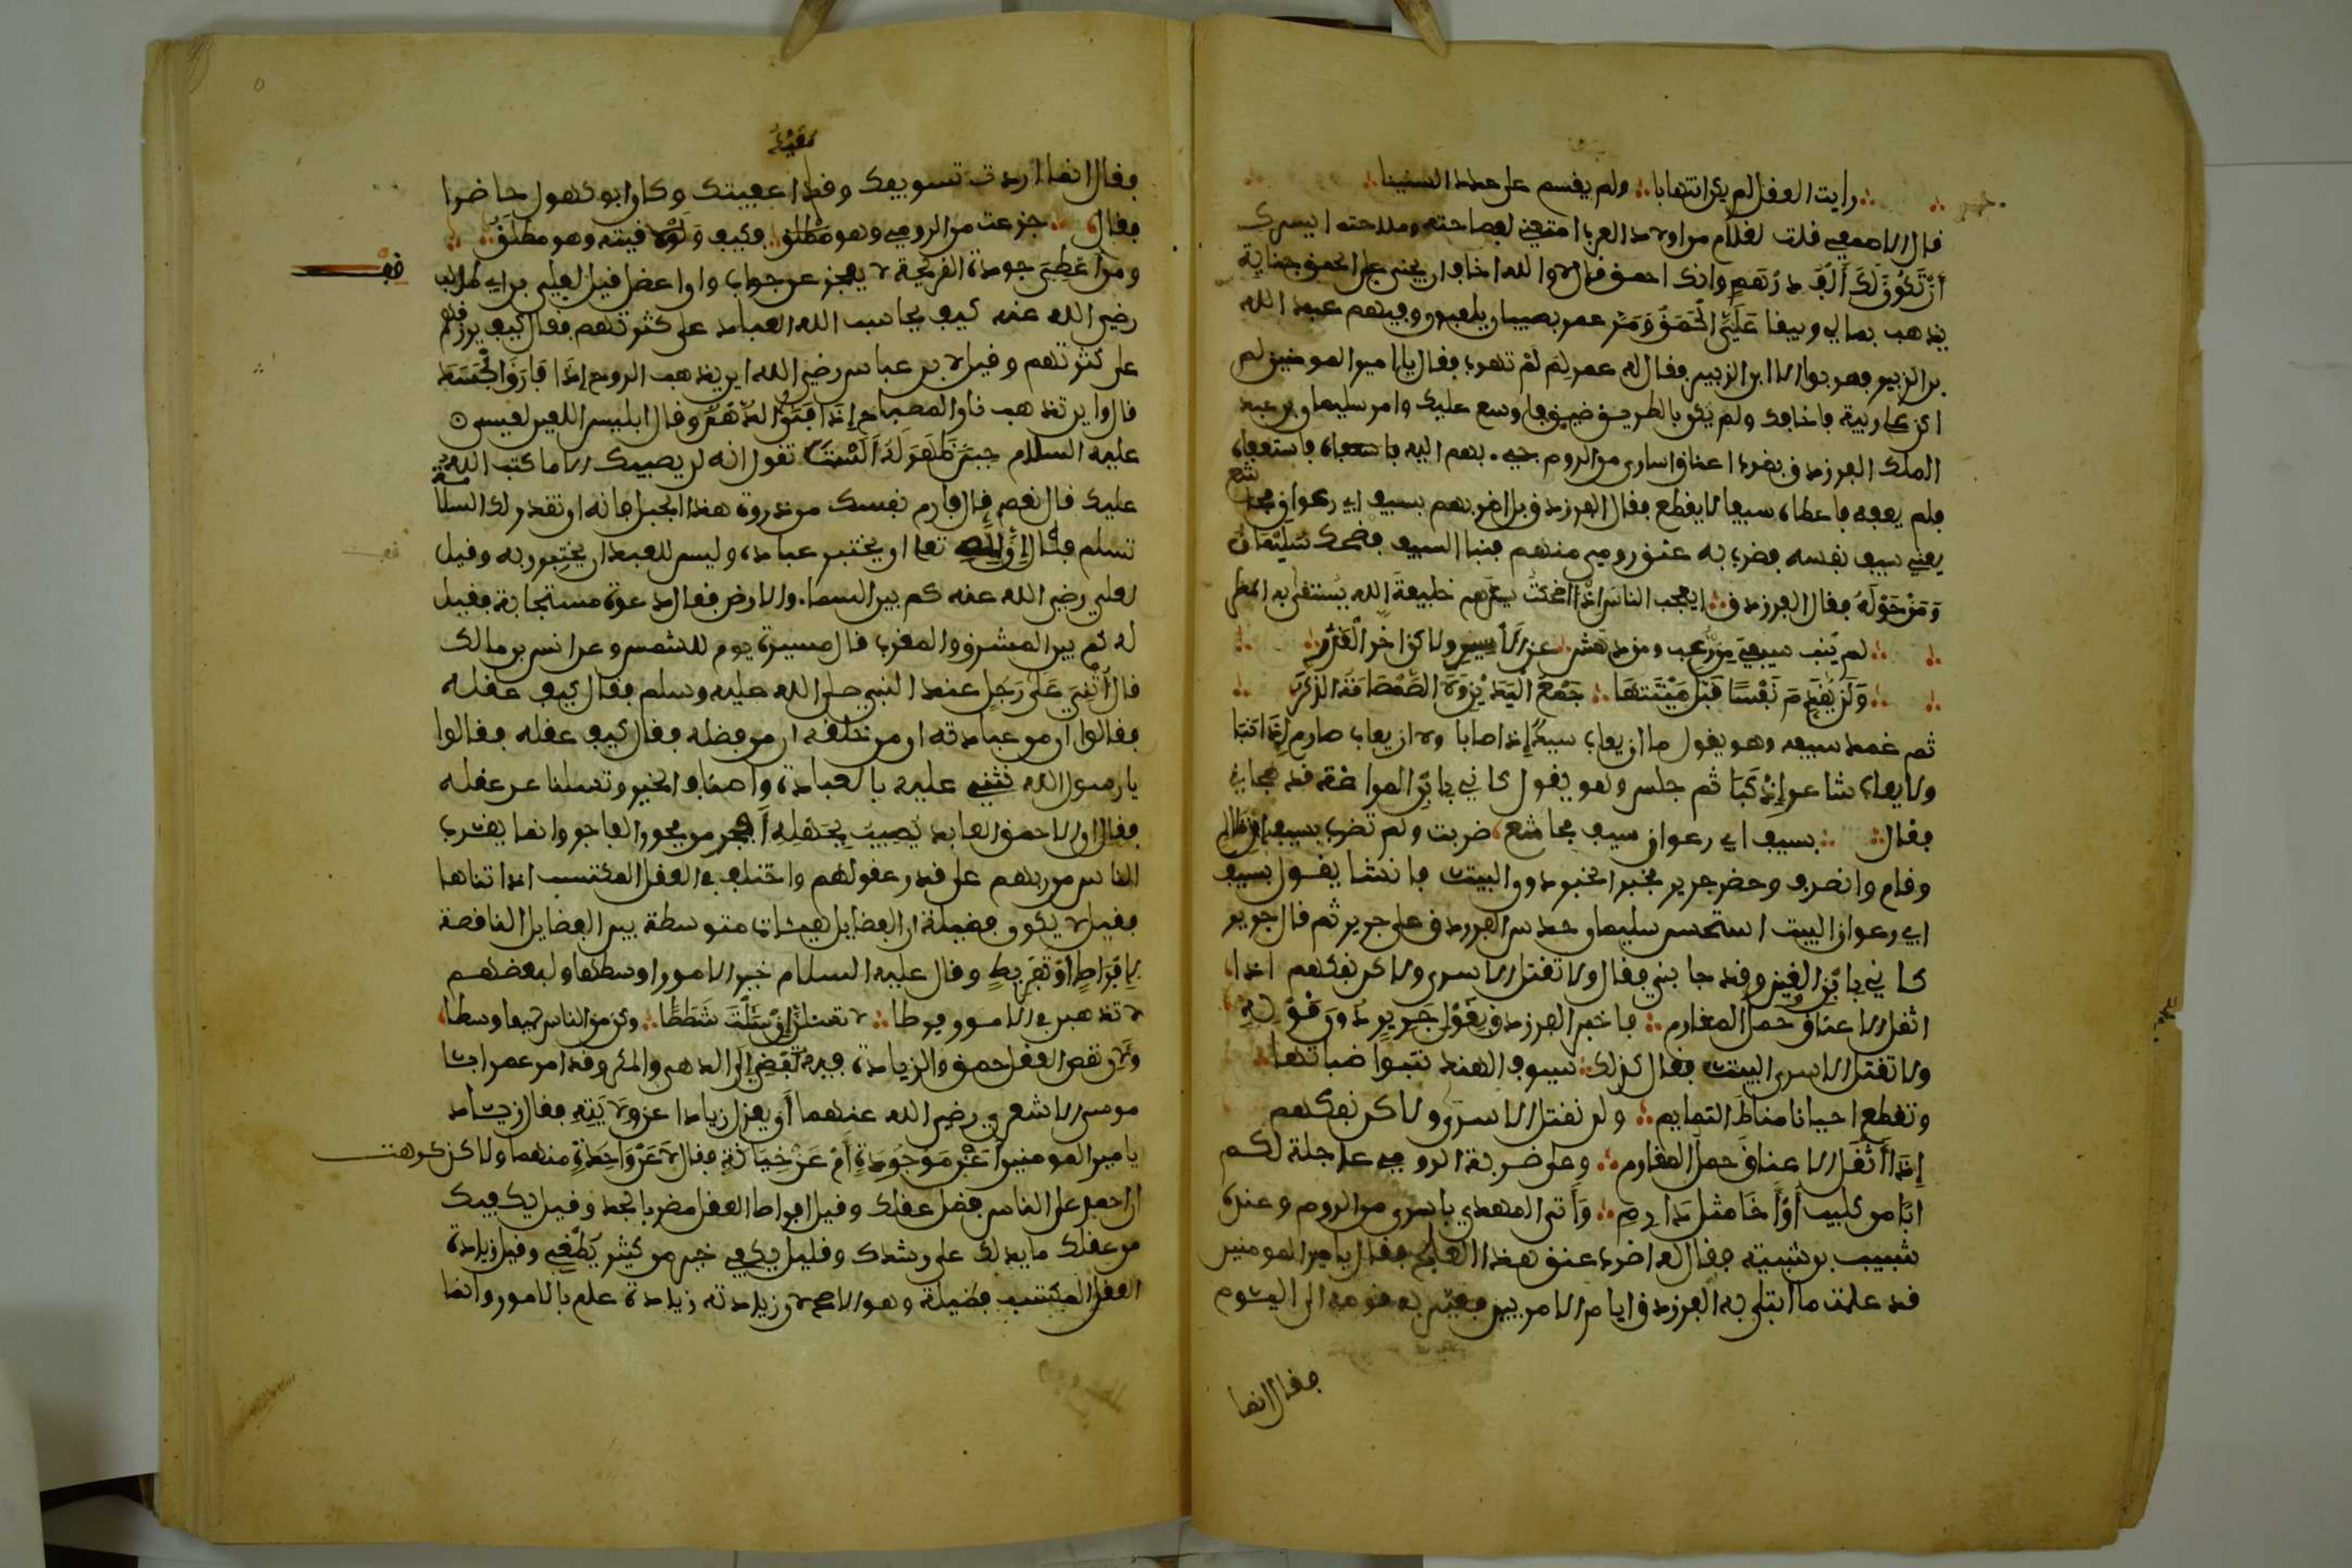 رايت العقل لم يكن انتهابا ولم يقسم على عدد السنينا
قال الاصمعي قلت لغلام من اولاد العرب امتعني بفصاحته وملاحته ايسرك
أن تكون لك ألف درهم وانك احمق قال لا والله اخاف ان يجني علي الحمق جناية
يذهب بمالي ويبقا عَلَيَّ الحمق ومر عمر بصبيان يلعبون وفيهم عبد الله
بن الزبير فهربوا الا ابن الزبير فقال له عمر لِمَ لَمْ تهرب فقال يا امير المومنين لم
اكن على ريبة فاخافك ولم يكن بالطريق ضيق فاوسع عليك وامر سليمان بن عبد
الملك الفرزدق بضرب اعناق اسارى من الروم فاستعفاه
فلم يعفه فاعطاه سيفا لا يقطع فقال الفرزدق بل اضربهم بسيف ابي رغوان مجاشع
يعني سيف نفسه فضرب به عنق رومي منهم فنبا السيف فضحك سليمان
وَمَنْ حَوْلَهُ فقال الفرزدق ايعجب الناس ان اضحكت سيدهم خليفة الله يستسقى به المطر
لم ينب سيفي من رعب ومن دهش عن الاسير ولاكن اخر القدر
وَلَنْ يُقَدِّمَ نَفْسًا قَبْلَ مِيْتَتِهَا جَمْعُ الْيَدَيْنِ وَلَا الصَّمْصَامَةُ الذَّكَرُ
ثم غمد سيفه وهو يقول ما ان يعاب سيد إذا صبا ولا يعاب صارم إذا نبا
ولا يعاب شاعر إذا كبا ثم جلس وهو يقول كاني بابن المراغة قد هجاني
فقال بسيف ابي رغوان سيف مجاشع ضربت ولم تضرب بسيف ابن ظالم
وقام وانصرف وحضر جرير فخبر الخبر دون البيت فانشا يقول بسيف
ابي رغوان البيت استحسن سليمان حدس الفرزدق على جرير ثم قال جرير
كاني بابن القين وقد جابني فقال ولا تقتل الاسرى ولاكن نفكهم اذا
اثقل الاعناق حمل المغارم فاخبر الفرزدق بِقَوْلِ جَرِيرٍ دون قوله
ولا تقتل الاسرى البيت فقال كذلك سيوف الهند تنبوا ضباتها
وتقطع احيانا مناط التمايم ولن نقتل الاسرى ولاكن نفكهم
إذا أثقل الاعناق حمل المغارم وهل ضربة الرومي جاعلة لكم
ابا من كليب أَوْ أَخَا مثل دارم وَأُتى المهدي باسرى من الروم وعنده
شبيب بن شيبة فقال له اضرب عنق هذا العلج فقال يا امير المومنين
قد علمت ما ابتلي به الفرزدق ايام الامويين فعير به قومه الى اليوم
فقال انما
فقال انما اردت تشريفك وقد اعفيتك وكان ابو الهول حاضرا
فقال جزعت من الرومي وهو مطلق فكيف وَلَوْ لاقيته وهو مطلق
ومن اعطي جودة القريحة لا يعجز عن جواب وان اعضل قيل لعلي بن ابي طالب
رضي الله عنه كيف يحاسب الله العباد على كثرتهم فقال كيف يرزقهم
على كثرتهم وقيل لابن عباس رضي الله اين يذهب الروح إذا فَارَقَ الْجَسَدَ
قال واين تذهب نار المصباح إذا فني الدهن وقال ابليس اللعين لعيسى
عليه السلام حِينَ ظَهَرَ لَهُ أَلَسْتَ تقول انه لن يصيبك الا ما كتب الله
عليك قال نعم قال فارم نفسك من ذروة هذا الجبل فانه ان يقدر لك السلامة
تسلم فقال إِنَّ لِلَّهِ تعالى ان يختبر عباده وليس للعبد ان يختبر ربه وقيل
لعلي رضي الله عنه كم بين السما والارض فقال دعوة مستجابة فقيل
له كم بين المشرق والمغرب قال مسيرة يوم للشمس وعن انس بن مالك
قال أُثْنِيَ عَلَى رَجُلٍ عند النبي صلى الله عليه وسلم فقال كيف عقله
فقالوا ان من عبادته ان من خلقه ان من فضله فقال كيف عقله فقالوا
يا رسول الله نثني عليه بالعبادة واصناف الخير وتسلنا عن عقله
فقال ان الاحمق العابد يُصِيبُ بِجَهْلِهِ أَعظم من فجور الفاجر وانما يقترب
الناس من ربهم على قدر عقولهم واختلف في العقل المكتسب اذا تناها
فقيل لا يكون فضيلة ان الفضايل هيئات متوسطة بين الفضايل الناقصة
لا إفراط أو تفريط وقال عليه السلام خير الامور اوسطها ولبعضهم
لا تذهبن في الامور فرطا لا تسئلن إِنْ سَأَلْتَ شَطَطًا وكن من الناس جميعا وسطا
ولان نقص العقل حمق والزيادة فيه تُفْضِي إلى الدهي والمكر وقد امر عمر ابا
موسى الاشعري رضي الله عنهما أن يعزل زيادا عن وِلَايَتِهِ فقال زياد
يا امير المومنين أَعَنْ مَوْجُودَةٍ أَمْ عَنْ خِيَانَةٍ فقال لا عَنْ وَاحِدَةٍ منهما ولاكن كرهت
ان احمل على الناس فضل عقلك وقيل افراط العقل مضر بالجد وقيل يكفيك
من عقلك ما يدلك على رشدك وقليل يكفي خير من كثير يُطْغِي وقيل زيادة
العقل المكتسب فضيلة وهو الاصح لان زيادته زيادة علم بالامور وانما